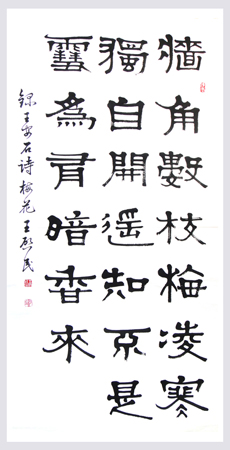 牆角數枝梅凌寒
獨自開遥知不是
雪為有暗香來
錄王安石诗梅花王民